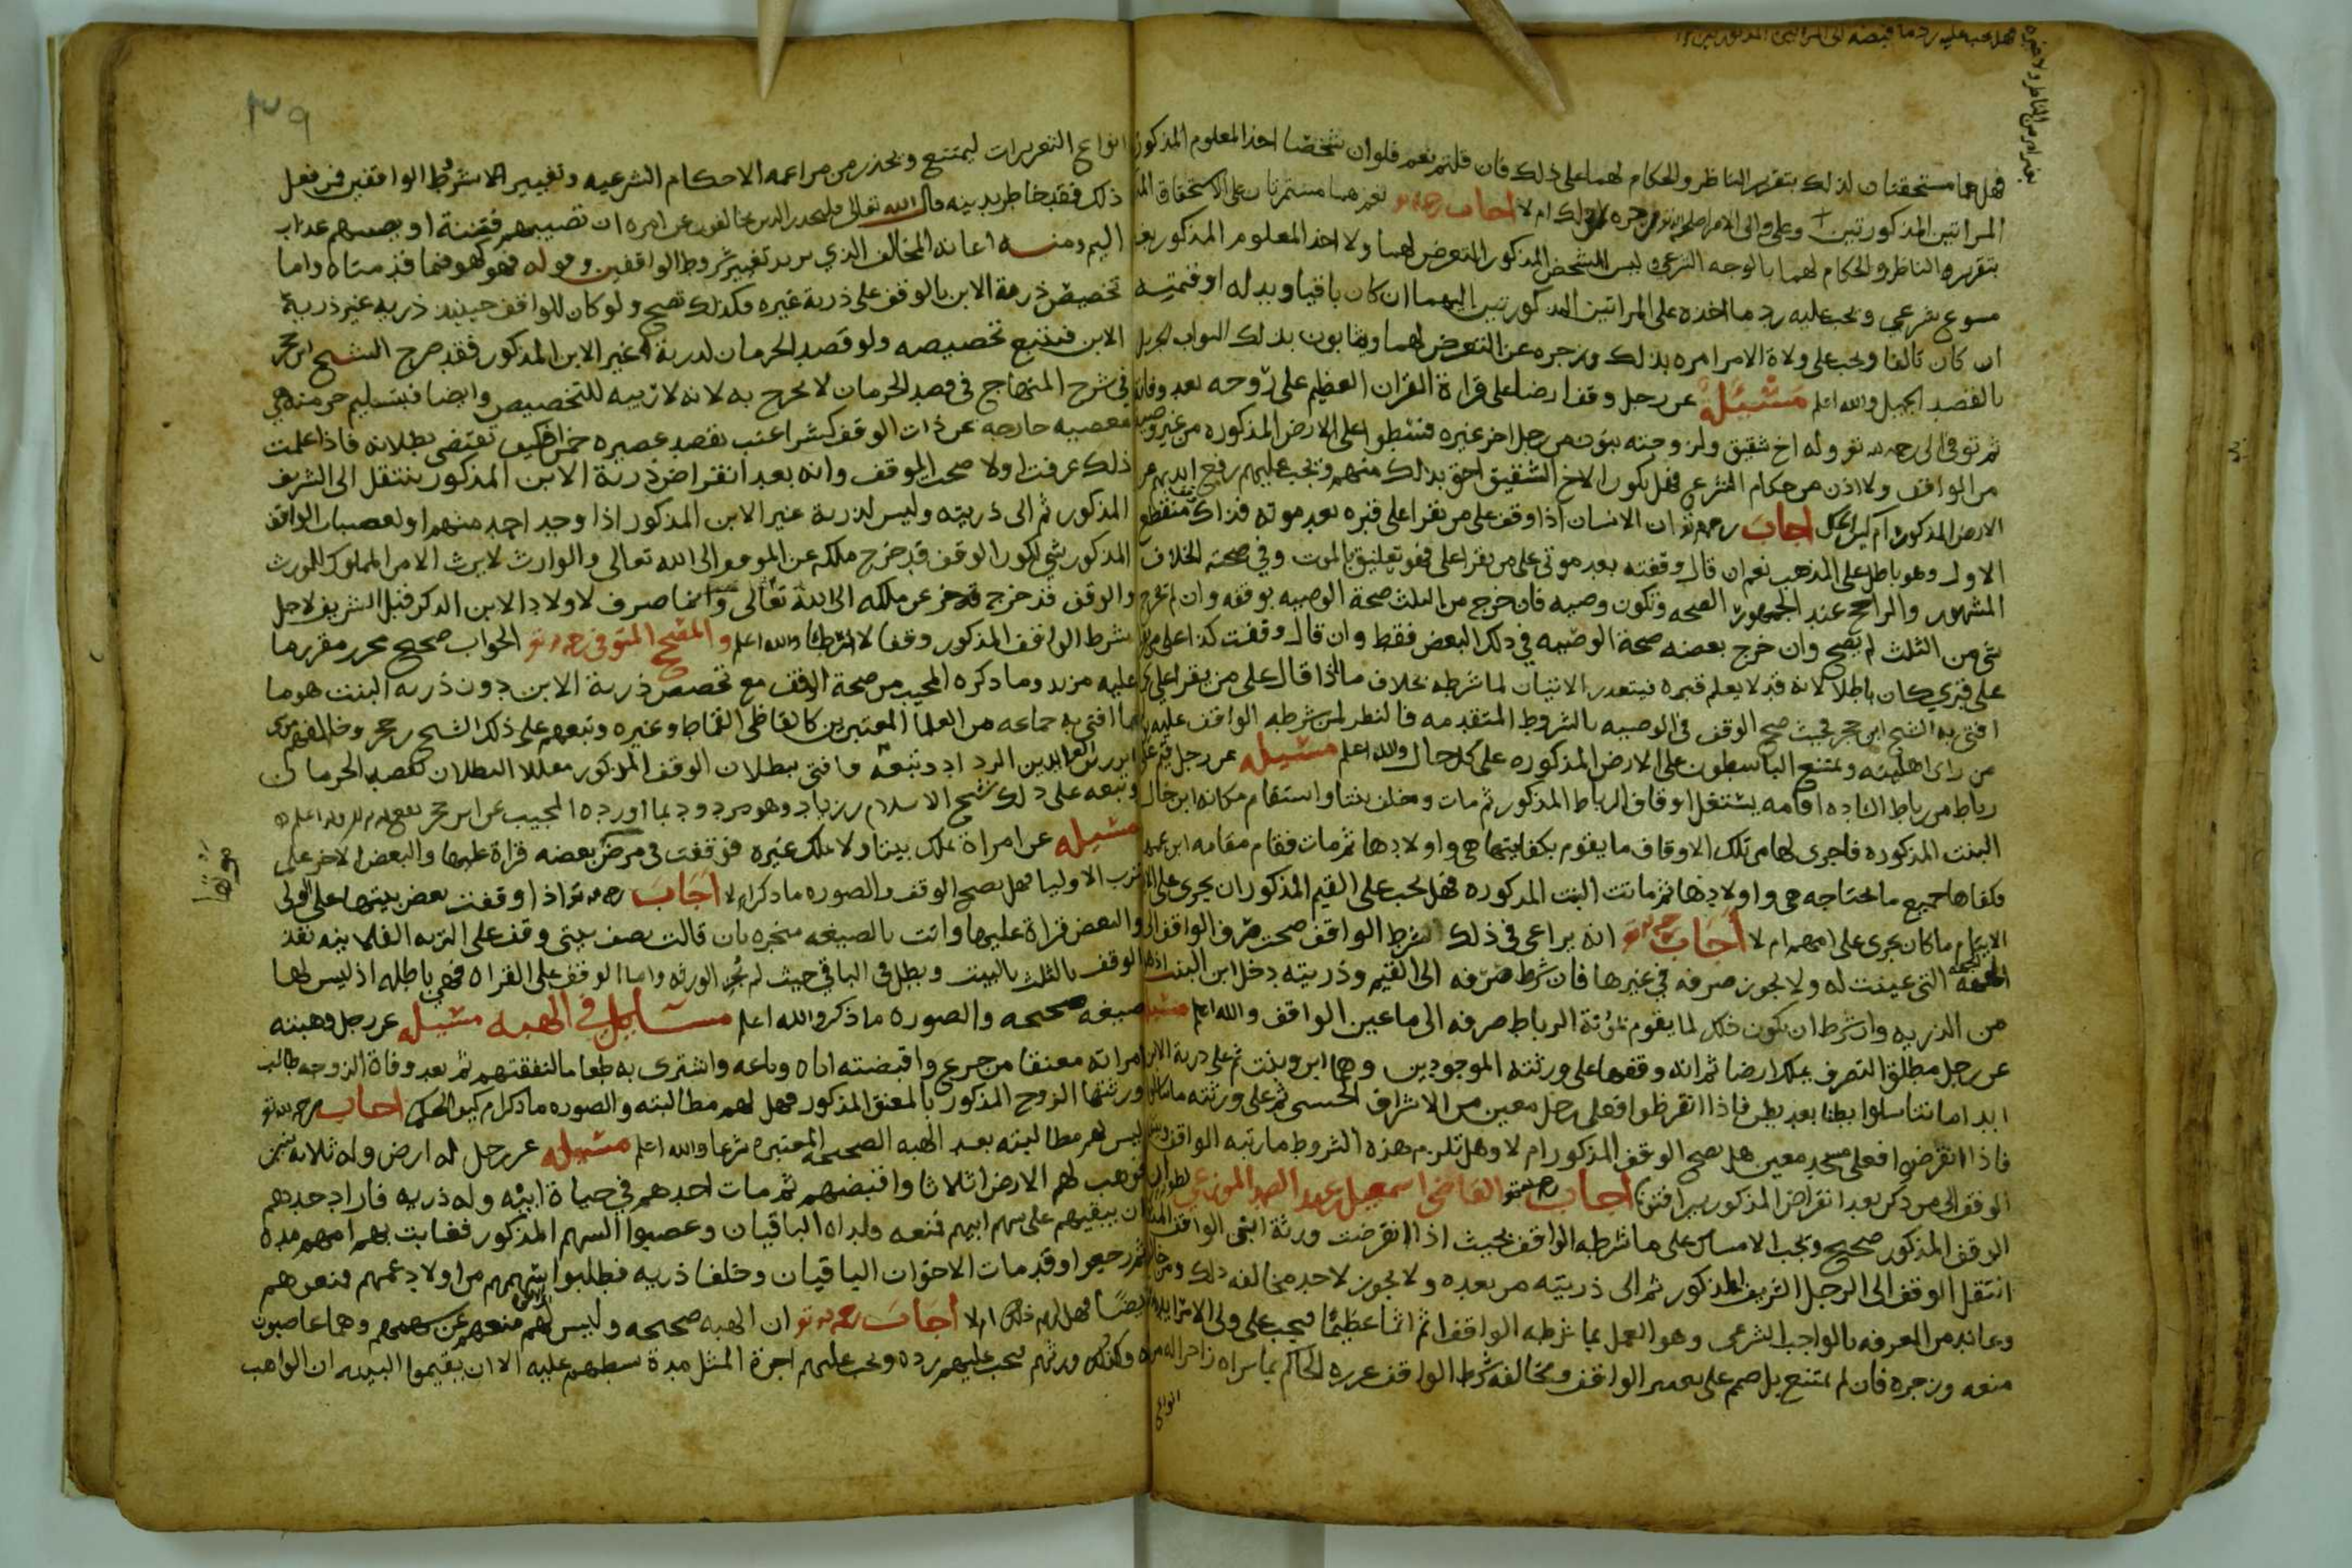 فهل هما مستحقتان لذلك بتقرير الناظر والحكام لهما على ذلك فان قلتم نعم فلو ان شخصا اخذ المعلوم المذكور
المراتين المذكورتين وعلى والى الامر زجره لذلك ام لا اجاب نعم هما مستمرتان على الاستحقاق
بتقرير الناظر والحكام لهما بالوجه الشرعي وليس للشخص المذكور التعرض لهما ولا اخذ المعلوم المذكور بغير
مسوغ شرعي ويجب عليه رد ما اخذه على المراتين المذكورتين اليهما ان كان باقيا وبدله او قيمته
ان كان تالفا ويجب على ولاة الامر امره بذلك وزجره عن التعرض لهما ويثابون بذلك الثواب الجزيل
بالقصد الجميل والله اعلم مسئلة عن رجل وقف ارضا على قراة القران العظيم على زوجه بعد وفاته
ثم توفي الى رحمه الله تع وله اخ شقيق ولزوجته بنون من رجل اخر غيره فتسطوا على الارض المذكوره من غير وصيه
من الواقف ولا اذن من حكام الشرع فهل يكون الاخ الشقيق احق بذلك منهم ويجب عليهم رفع ايديهم عن
الارض المذكوره ام كيف الحكم اجاب ان الانسان اذا وقف على من يقرا على قبره بعد موته فذاك منقطع
الاول وهو باطل على المذهب نعم ان قال وقفته بعد موتي على من يقرا على فهو تعليق بالموت وفي صحته الخلاف
المشهور والراجح عند الجمهور الصحه وتكون وصيه فان خرج من الثلث صحة الوصيه بوقفه وان لم يخرج
شي من الثلث لم يصح وان خرج بعضه صحة الوصيه في ذلك البعض فقط وان قال وقفت كذا على من يقرا
على قبري كان باطلا لانه قد لا يعلم قبره فيتعذر الاتيان لما شرطه بخلاف ما اذا قال على من يقرا على
افتى به الشيخ ابن حجر فحيث صح الوقف في الوصيه بالشروط المتقدمه فالنظر لمن شرطه الواقف عليه
من راى اهليته ويمتنع الباسطون على الارض المذكوره على كل حال والله اعلم مسئله عن رجل قيم على
رباط من رباط الناده اقامه يشتغل اوقاف الرباط المذكور ثم مات وخلف بنتا واستقام مكانه ابن خال
البنت المذكوره فاجرى لها من تلك الاوقاف ما يقوم بكفايتها هي واولادها ثم مات فقام مقامه ابن عمه
فكفاها جميع ما تحتاجه هي واولادها ثم ماتت البنت المذكوره فهل يجب على القيم المذكور ان يجرى على
الايتام ما كان يجرى على امهم ام لا اجاب انه يراعى في ذلك شرط الواقف صحت صرف الواقف الى
الجهه التي عينت له ولا يجوز صرفه في غيرها فان شرط صرفه الى القيم وذريته دخل ابن البنت
من الذريه وان شرط ان يكون ذلك لما يقوم بمؤنة الرباط صرفه الى ما عين الواقف والله اعلم مسئله
عن رجل مطلق التصرف يملك ارضا ثم انه وقفها على ورثته الموجودين وهما ابن وبنت ثم على ذرية الابن
ابدا ما تناسلوا بطنا بعد بطن فاذا انقرظوا فعلى رجل معين من الاشراف الحسني ثم على ورثته
فاذا انقرضوا فعلى مسجد معين هل يصح الوقف المذكور ام لا وهل تلزم هذه الشروط ما رتبه الواقف
الوقف الى من ذكر بعد انقراض المذكورين افتونا اجاب القاضي اسمعيل بن عبد الصمد الموزعي
الوقف المذكور صحيح ويجب الامساك على ما شرطه الواقف بحيث اذا انقرضت ورثة ابنى الواقف
انتقل الوقف الى الرجل الشريف المذكور ثم الى ذريته من بعده ولا يجوز لاحد مخالفه ذلك
وعاند من المعرفه بالواجب الشرعي وهو العمل بما شرطه الواقف اثم اثما عظيما فيجب على ولى الامر
منعه وزجره فان لم يمتنع بل صمم على تغيير الواقف ومخالفه شرط الواقف عزره الحاكم بما يراه زاجرا له
انواع التعزيرات ليمتنع ويحذر من مراغمه الاحكام الشرعيه وتغيير الشروط الواقفين فمن فعل
ذلك فقد خاطر بدينه قال الله تعالى فليحذر الذين يخالفون عن امره ان تصيبهم فتنة او يصيبهم عذاب
اليم ومنه اعانه المخالف الذي يريد تغيير شروط الواقفين وقوله فهو كهو فيما قدمناه واما
تخصيص ذرية الابن بالوقف على ذرية غيره فكذلك تصح ولو كان للواقف حينيذ ذريه غير ذرية
الابن فيتبع تخصيصه ولو قصد الحرمان لذرية غير الابن المذكور فقد صرح الشيخ ابن حجر
في شرح المنهاج في قصد الحرمان لا يحرج به لانه لا قرينه للتخصيص وايضا فبتسليم حرمته هي
معصيه خارجه عن ذات الوقف كشراعنب بقصد عصيره خمرا فكيف تقتضى بطلانه فاذا علمت
ذلك عرفت اولا صحت الوقف وانه بعد انقراض ذرية الابن المذكور ينتقل الى الشريف
المذكور ثم الى ذريته وليس لذرية غير الابن المذكور اذا وجد احد منهم او لعصبات الواقف
المذكور شي لكون الوقف قد خرج ملكه عن الموقوف الى الله تعالى والوارث لا يرث الا من المملوك للمورث
والوقف قد خرج عن ملكه الى الله تعالى وانما صرف لاولاد الابن الذكر قبل الشريف لاجل
شرط الواقف المذكور وقفا لا ارثا والله اعلم و الجواب صحيح محرر مقرر ما
عليه مزيد وما ذكره المجيب من صحة الوقف مع تخصيص ذرية الابن دون ذريه البنت هو ما
افتى به جماعه من العلما المعتبرين كالقاظى القماط وغيره وتبعهم على ذلك الشيخ بن حجر وخالفهم
الدين الرداد وتبعه فافتى ببطلان الوقف المذكور معللا البطلان بقصد الحرمان
وتبعه على ذلك شيخ الاسلام بن زياد وهو مردود بما اورده المجيب عن ابن حجر
مسئله عن امراة تملك بيتا ولا تملك غيره فوقفت في مرض بعضه قراة عليها والبعض الاخر على
ترب الاوليا فهل يصح الوقف والصوره ما ذكر ام لا اجاب اذا اوقفت بعض بيتها على
والبعض قراة عليها واتت بالصيغه منجزه بان قالت نصف بيتي وقف على التربه الفلانيه نفذ
الوقف بالثلث بالبيت وبطل في الباقي حيث لم تجز الورثه واما الوقف على القراه فهي باطله اذ ليس لها
صيغه صحيحه والصوره ما ذكر والله اعلم مسايل في الهبه مسئله عن رجل وهبته
امراته معنقا من جزع واقبضته اياه وباعه واشترى به طعاما لنفقتهم ثم بعد وفاة الزوجه طالب
ورثتها الزوج المذكور بالمعنق المذكور فهل لهم مطالبته والصوره ما ذكر ام كيف الحكم اجاب
ليس لهم مطالبته بعد الهبه الصحيحه المعتبره شرعا والله اعلم مسئله عن رجل له ارض وله ثلاثه بنين
فوهب لهم الارض اثلاثا واقبضهم ثم مات احدهم في حياة ابيه وله ذريه فاراد جدهم
ان يبقيهم على سهم ابيهم فمنعه ولداه الباقيان وغصبوا السهم المذكور فغابت بهم امهم مده
ثم رجعوا وقد مات الاخوان الباقيان وخلفا ذريه فطلبوا سهمهم من اولاد عمهم فمنعوهم
ايضا فهل لهم ذلك ام لا اجاب ان الهبه صحيحه وليس لهم منعهم عن سهمهم وهما غاصبون
وكذلك ورثتهم يجب عليهم رده ويجب عليهم اجرة المثل مدة بسطهم عليه الا ان يقيموا البينه ان الواهب